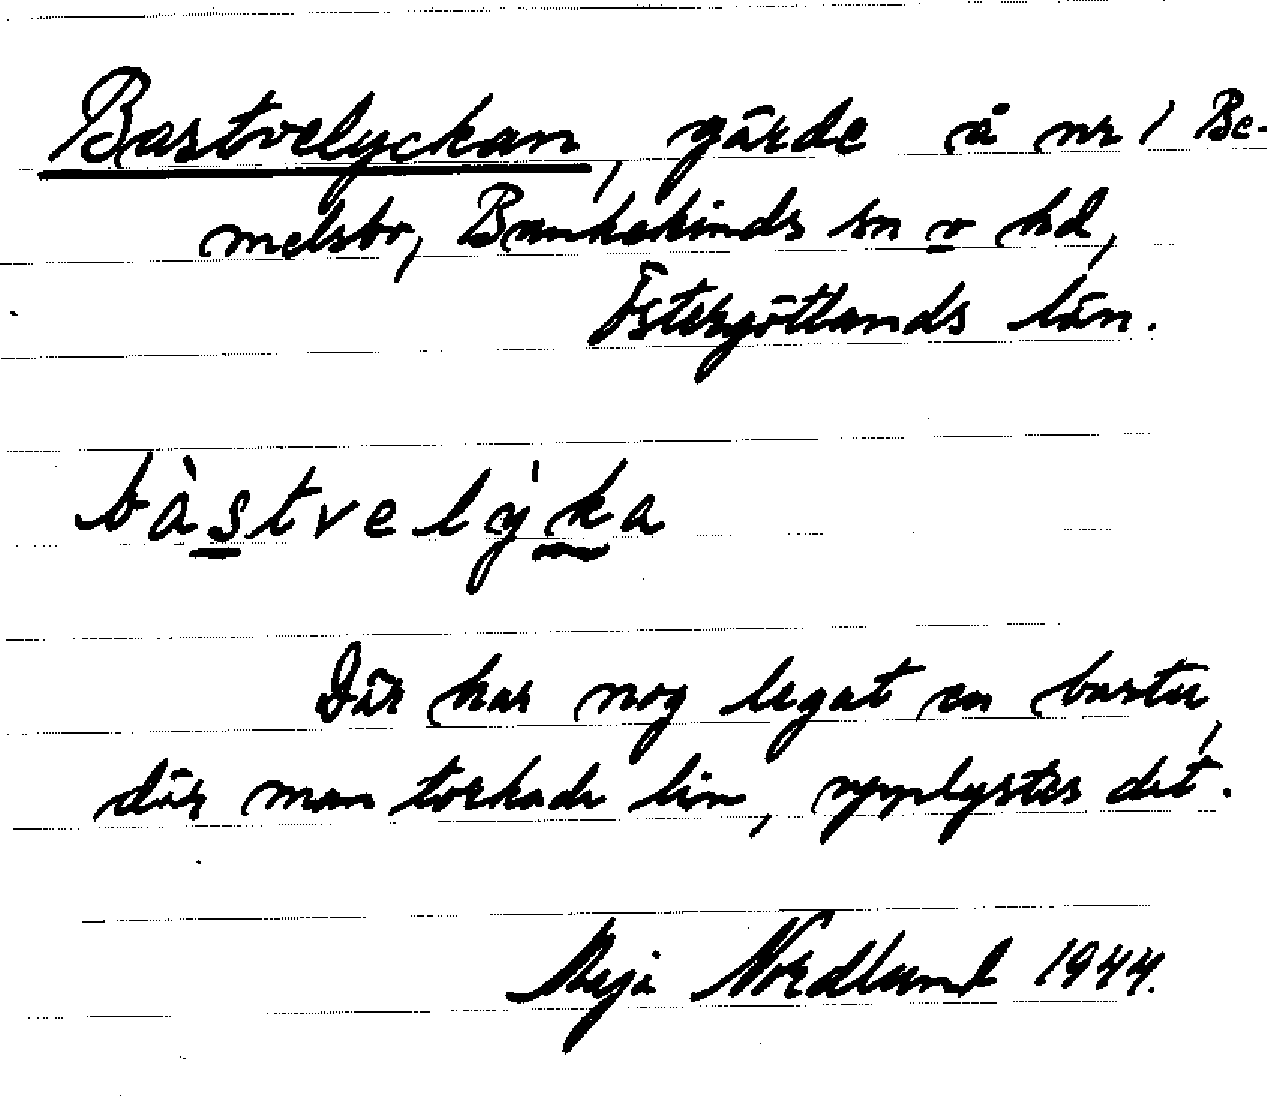 Bastvelyckan, gärde å nr 1 Be-
melsbo, Bankekinds sn o hd,
Östergötlands län.
bàstvelýka
Där har nog legat en bastu,
där man torkade lin, upplystes det.
Nordlund 1944.